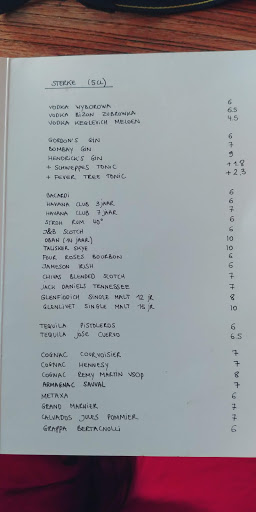 STERKE (5CL)
VODKA WYBOROWA 6
VODKA BIZON ZUBROWKA 6.5
VODKA KEGLEVICH MELOEN 4.5
GORDON'S GIN 6
BOMBAY GIN 7
HENDRICK'S GIN 9
+ SCHWEPPES TONIC +1.8
+ FEVER TREE TONIC +2.3
BACARDI 6
HAVANA CLUB 3 JAAR 6
HAVANA CLUB 7 JAAR 7
STROH RUM 40° 6
J&B SCOTCH 6
OBAN (14 JAAR) 10
TALISKER SKYE 10
FOUR ROSES BOURBON 6
JAMESON IRISH 6
CHIVAS BLENDED SCOTCH 7
JACK DANIELS TENNESSEE 7
GLENFIDDICH SINGLE MALT 12 JR 8
GLENLIVET SINGLE MALT JR 10
TEQUILA PISTOLEROS 6
TEQUILA JOSE CUERVO 6.5
COGNAC COURVOISIER 7
COGNAC HENNESY 7
COGNAC REMY MARTIN VSOP 8
ARMAGNAC SAUVAL 7
METAXA 6
GRAND MARNIER 7
CALVADOS JULES POMMIER 7
GRAPPA BERTAGNOLLI 6